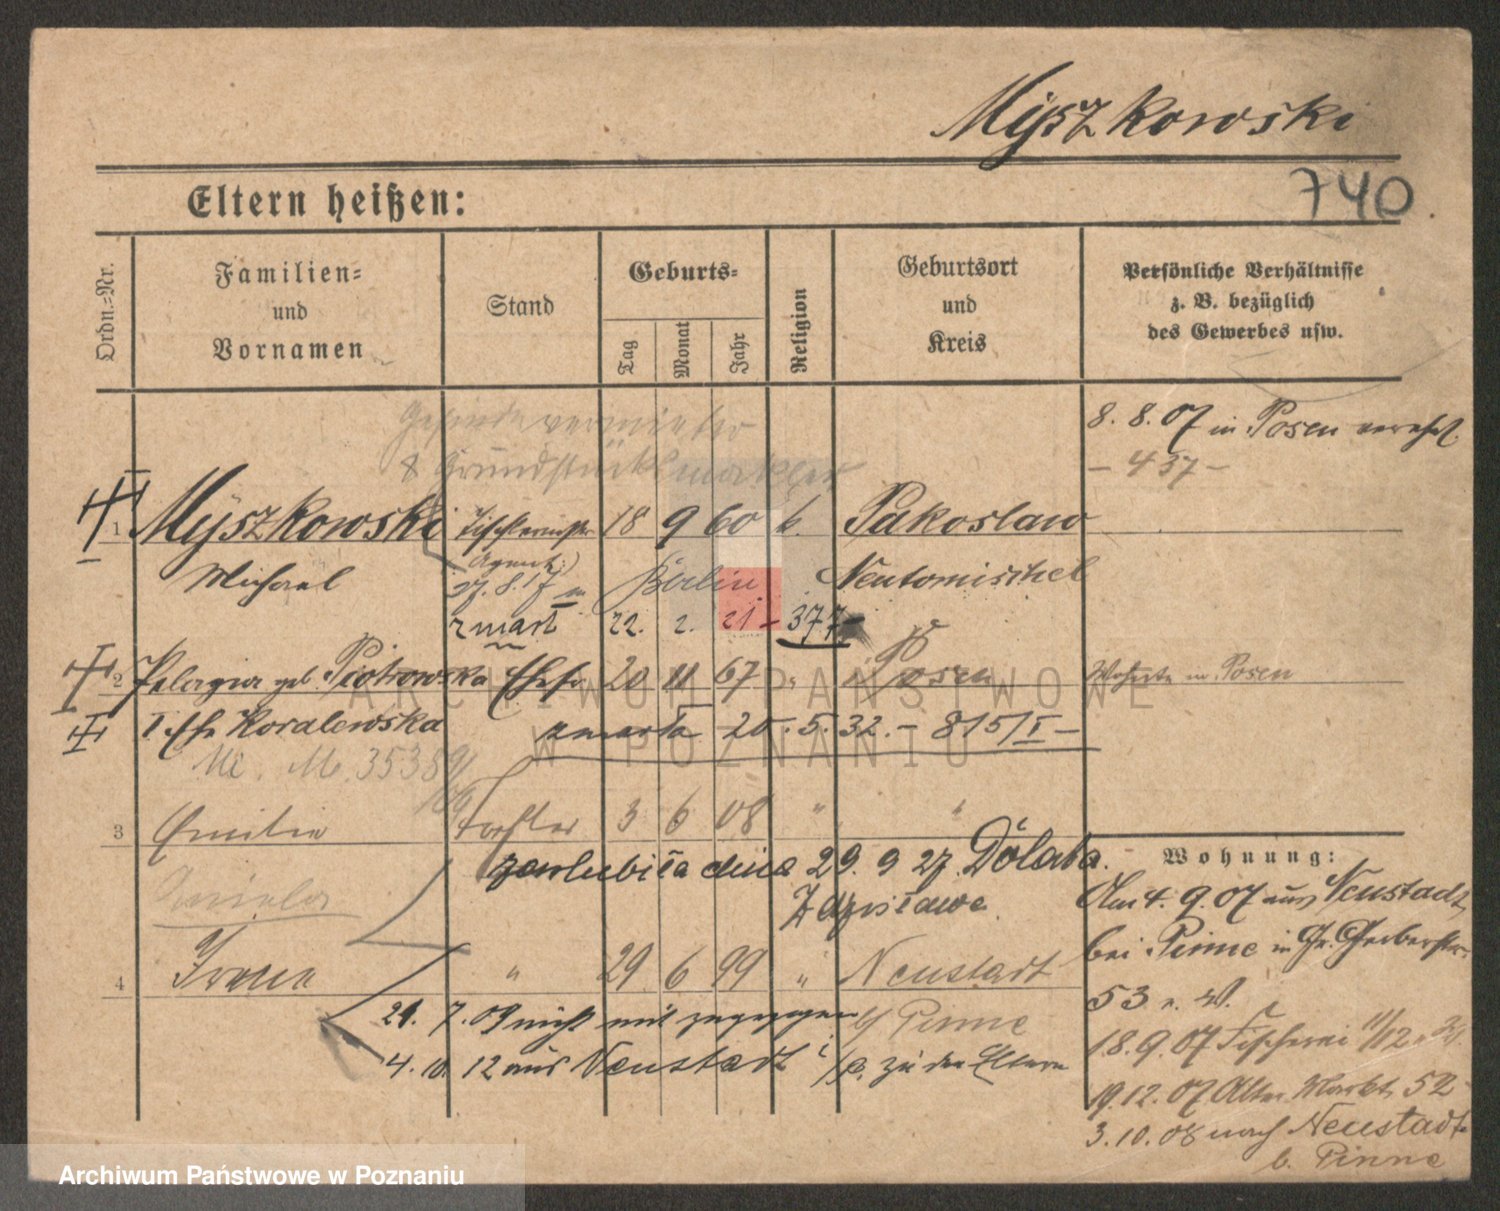 Myszkowski
740.
Eltern heißen:
Ordn.=Nr.
Familien=
und
Vornamen
Stand
Geburts=
Tag
Monat
Jahr
Religion
Geburtsort
und
Kreis
Persönliche Verhältnisse
z. B. bezüglich
des Gewerbes usw.
Gesindevermieter
& Grundstücksmakler
8. 8. 07 in Posen
– 437 –
1 Myszkowski Tischlermstr 18 9 60 k. Pakoslaw
Agent
Michael 27. 8. 17 Berlin Neutomischel
zmarł 22. 2. 21 – 377 –
2 Pelagia geb. Piotrowska Ehefr 20 11 67 " Posen
in Posen
I Ehe Koralewska zmarła 20. 5. 32. – 815/I –
3538
3 Emilie Tochter 3 6 08 " "
zaślubiła dnia 29. 9 27. Dolata
Zdzisława
4 Irene " 29 6 99 " Neustadt
21. 7. 09 nicht mit zugezogen b/ Pinne
4. 10. 12 aus Neustadt b/P. zu den Eltern
Wohnung:
Am 4. 9. 07 aus Neustadt
bei Pinne in Gr. Gerberstr.
53 v. W.
18. 9. 07 Fischerei 11/12
19. 12. 07 Alter Markt 52
3. 10. 08 nach Neustadt
b. Pinne
ARCHIWUM PAŃSTWOWE
W POZNANIU
Archiwum Państwowe w Poznaniu